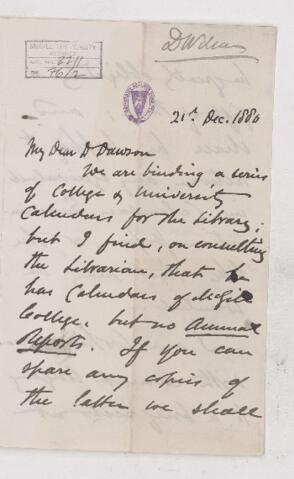 McGILL UNIVERSITY
ARCHIVES
ACC. NO.
REF.
D Wilson
21st Dec. 1880
My Dear Dr Dawson
We are binding a series
of College & University
Calendars for the Library;
but I find, on consulting
the Librarian, that he
has Calendars of McGill
College, but no Annual
Reports. If you can
spare any copies of
the latter we shall